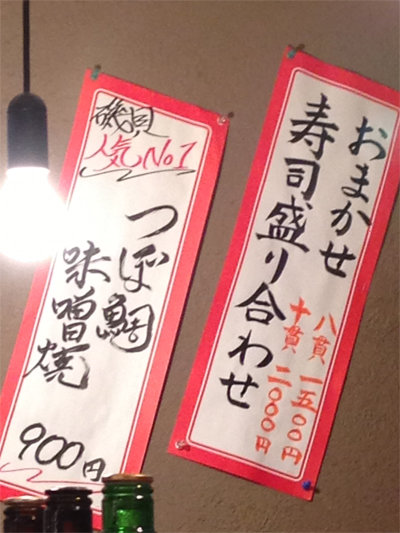 おまかせ
寿司盛り合わせ
八貫 一五〇〇円
十貫 二〇〇〇円
磯貝
人気No1
つぼ鯛
味噌焼
900円